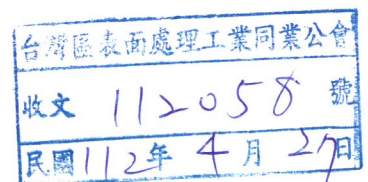 台灣區表面處理工業同業公會
收文 112058 號
民國112年4月27日